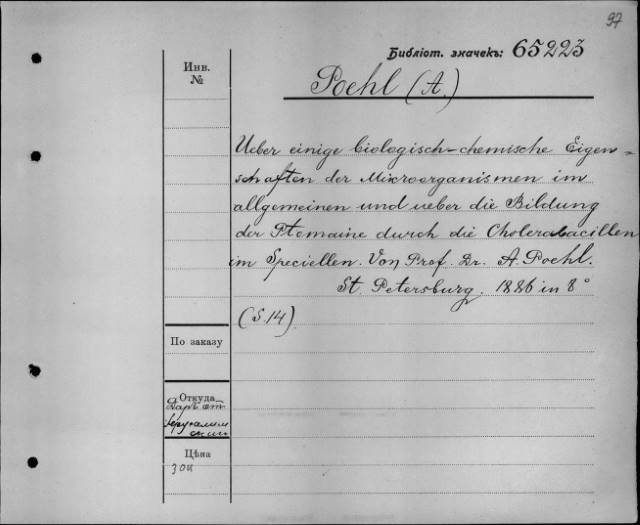 97
Библіот. значекъ: 65223
Инв.
№
Poehl (A.)
Ueber einige biologisch-chemische Eigen-
schaften der Mikroorganismen im
allgemeinen und ueber die Bildung
der Ptomaine durch die Cholerabacillen
im Speciellen. Von Prof. Dr. A. Poehl.
St. Petersburg. 1886 in 8°
(S.14)
По заказу
Откуда
Цѣна